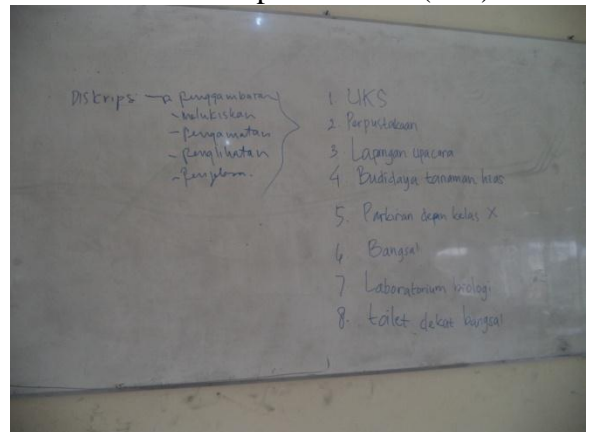 Diskrips → penggambaran
- melukiskan
- pengamatan
- penglihatan
1 UKS
2. Perpustakaan
3 Lapangan upacara
4 Budidaya tanaman hias
5. Parkiran depan kelas X
6 Bangsal
7 Laboratorium biologi
8. toilet dekat bangsal